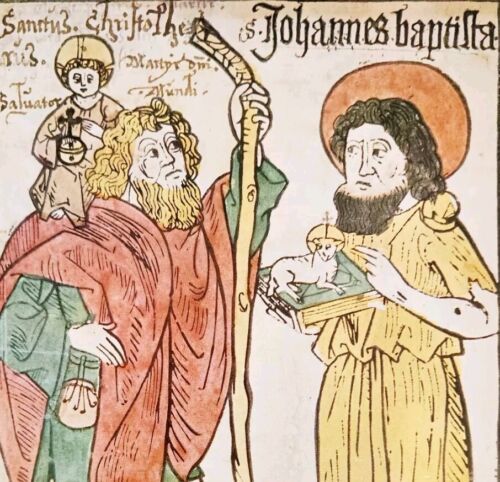 Sanctus. Christophe
rus. Martyr dm̄.
Salvator Mundi.
S. Johannes baptista.